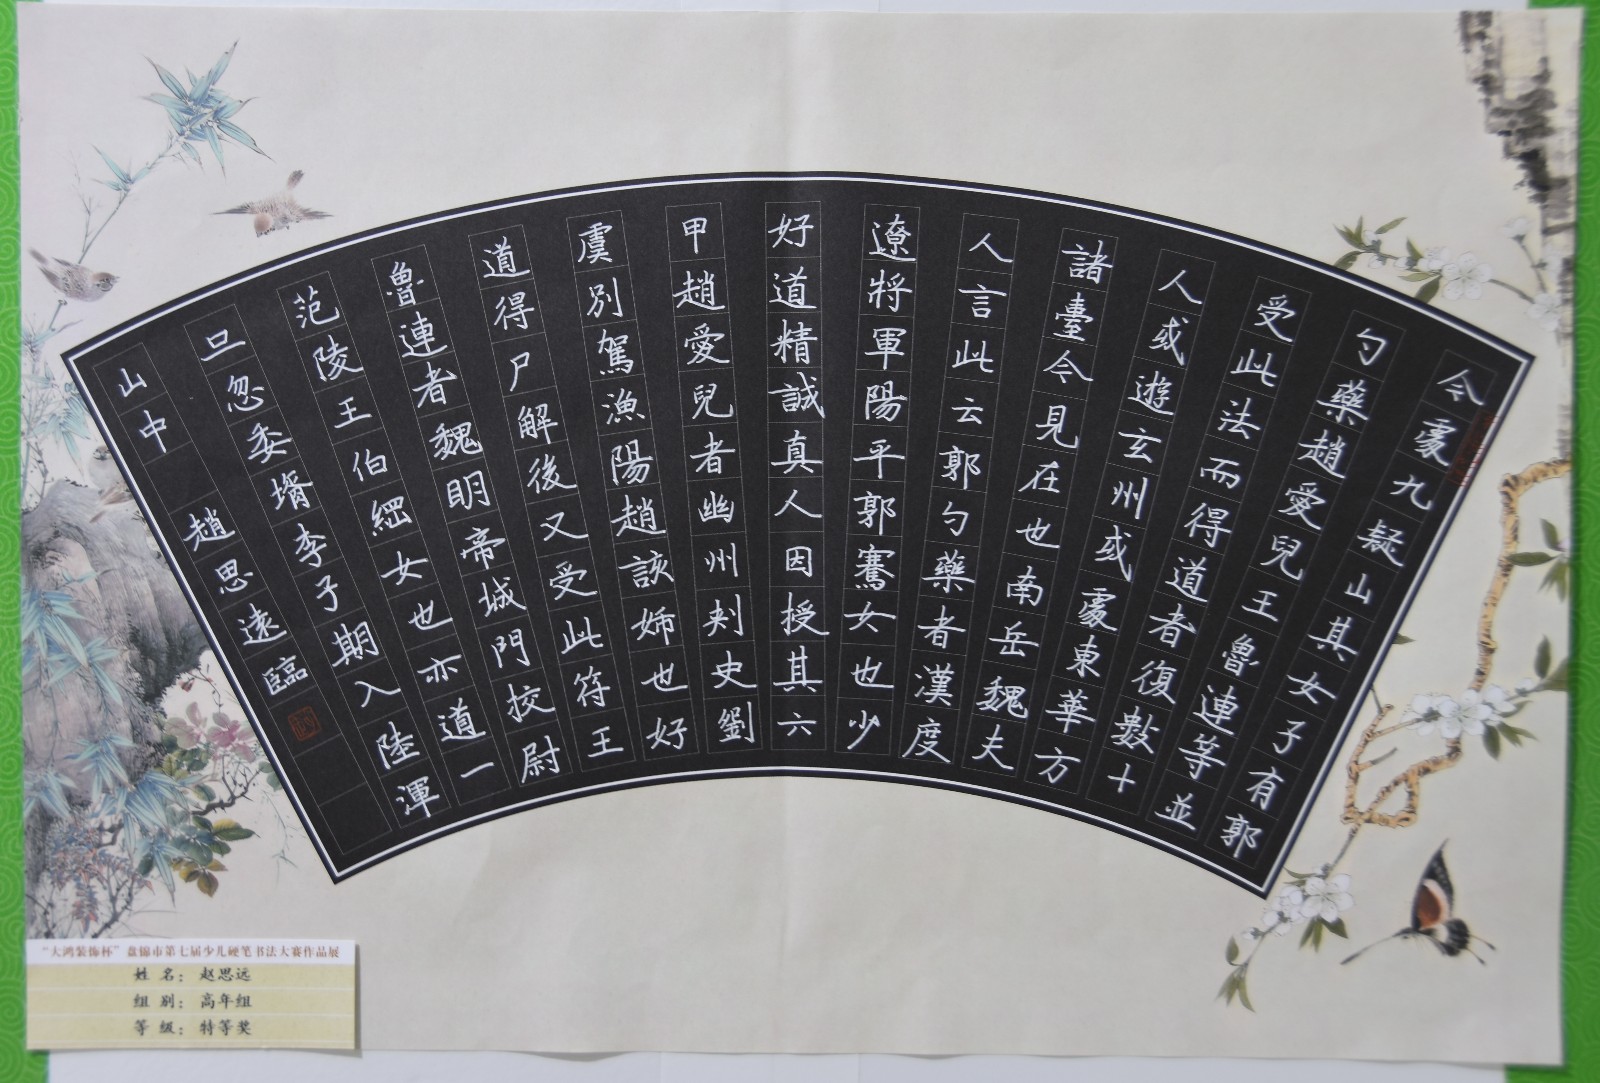 令處九疑山其女子有郭
勺藥趙愛兒王魯連等並
受此法而得道者復數十
人或遊玄州或處東華方
諸臺令見在也南岳魏夫
人言此云郭勺藥者漢度
遼將軍陽平郭騫女也少
好道精誠真人因授其六
甲趙愛兒者幽州刾史劉
虞別駕漁陽趙該姊也好
道得尸解後又受此符王
魯連者魏明帝城門校尉
范陵王伯綱女也亦道一
旦忽委壻李子期入陸渾
山中
趙思遠臨
“大鸿装饰杯”盘锦市第七届少儿硬笔书法大赛作品展
姓名：赵思远
组别：高年组
等级：特等奖